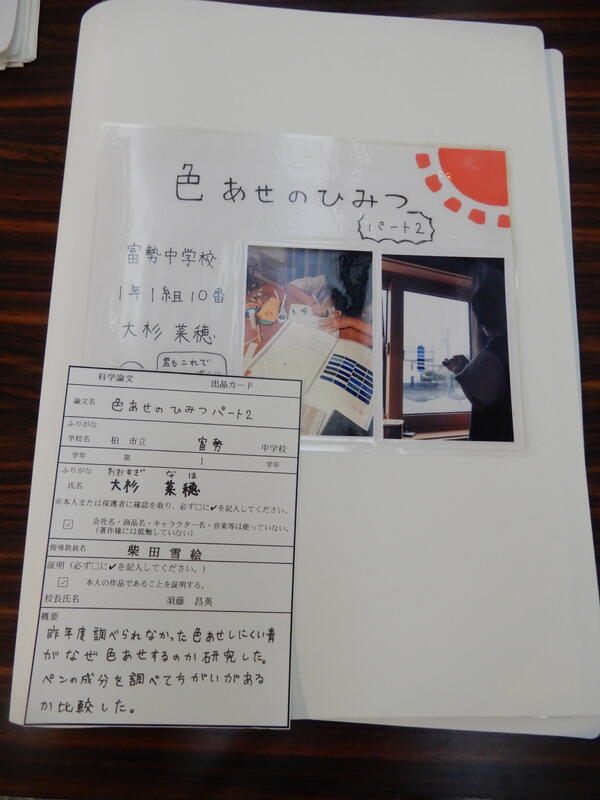 色あせのひみつ
パート2
富勢中学校
1年1組10番
大杉 菜穂
君もこれで
科学論文 出品カード
論文名 色あせのひみつパート2
ふりがな
学校名 柏 市立 富勢 中学校
学年 第 1 学年
ふりがな おおすぎ なほ
氏名 大杉 菜穂
※本人または保護者に確認を取り、必ず□に✔を記入してください。
☑ 会社名・商品名・キャラクター名・音楽等は使っていない。
(著作権には低触していない)
指導教員名 柴田雪絵
証明(必ず□に✔を記入してください。)
☑ 本人の作品であることを証明する。
校長氏名 須藤 昌英
概要
昨年度調べられなかった色あせしにくい青
がなぜ色あせするのか研究した。
ペンの成分を調べてちがいがある
か比較した。